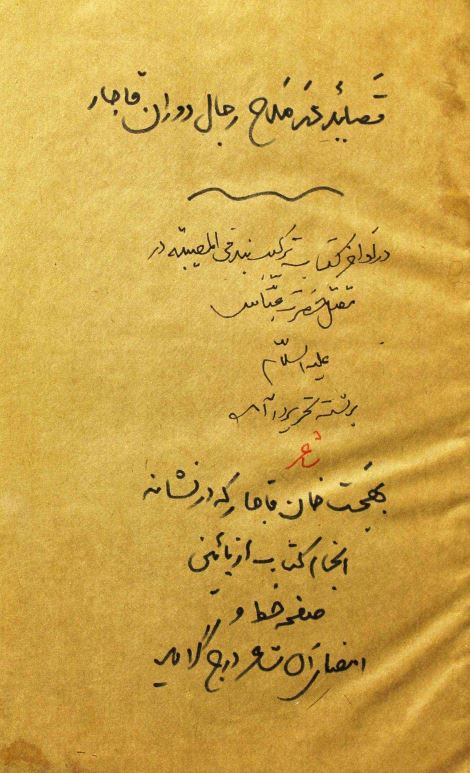 قصاید در مدح رجال دوران قاجار
در اواخر کتاب ترکیب بند فی المصیبة در
مقتل حضرت عباس
علیه السلام
برشته تحریر درآمده
شاعر
بهجت خان قاجار که در نشانه
انجام کتاب از پائین
صفحه خط و
امضای آن شاعر درج گردید